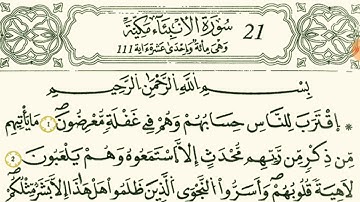 21 سُورَةُ الْأَنْبِيَاءِ مَكِّيَّةٌ
وَهِيَ مِائَةٌ وَإِحْدَى عَشْرَةَ ءَايَة 111
بِسْمِ اللَّهِ الرَّحْمَٰنِ الرَّحِيمِ
اِقْتَرَبَ لِلنَّاسِ حِسَابُهُمْ وَهُمْ فِي غَفْلَةٍ مُعْرِضُونَ ① مَا يَأْتِيهِم
مِن ذِكْرٍ مِّن رَّبِّهِم مُّحْدَثٍ إِلَّا اَسْتَمَعُوهُ وَهُمْ يَلْعَبُونَ ②
لَاهِيَةً قُلُوبُهُمْ وَأَسَرُّوا النَّجْوَى الَّذِينَ ظَلَمُوا هَلْ هَٰذَا إِلَّا بَشَرٌ مِّثْلُكُمْ